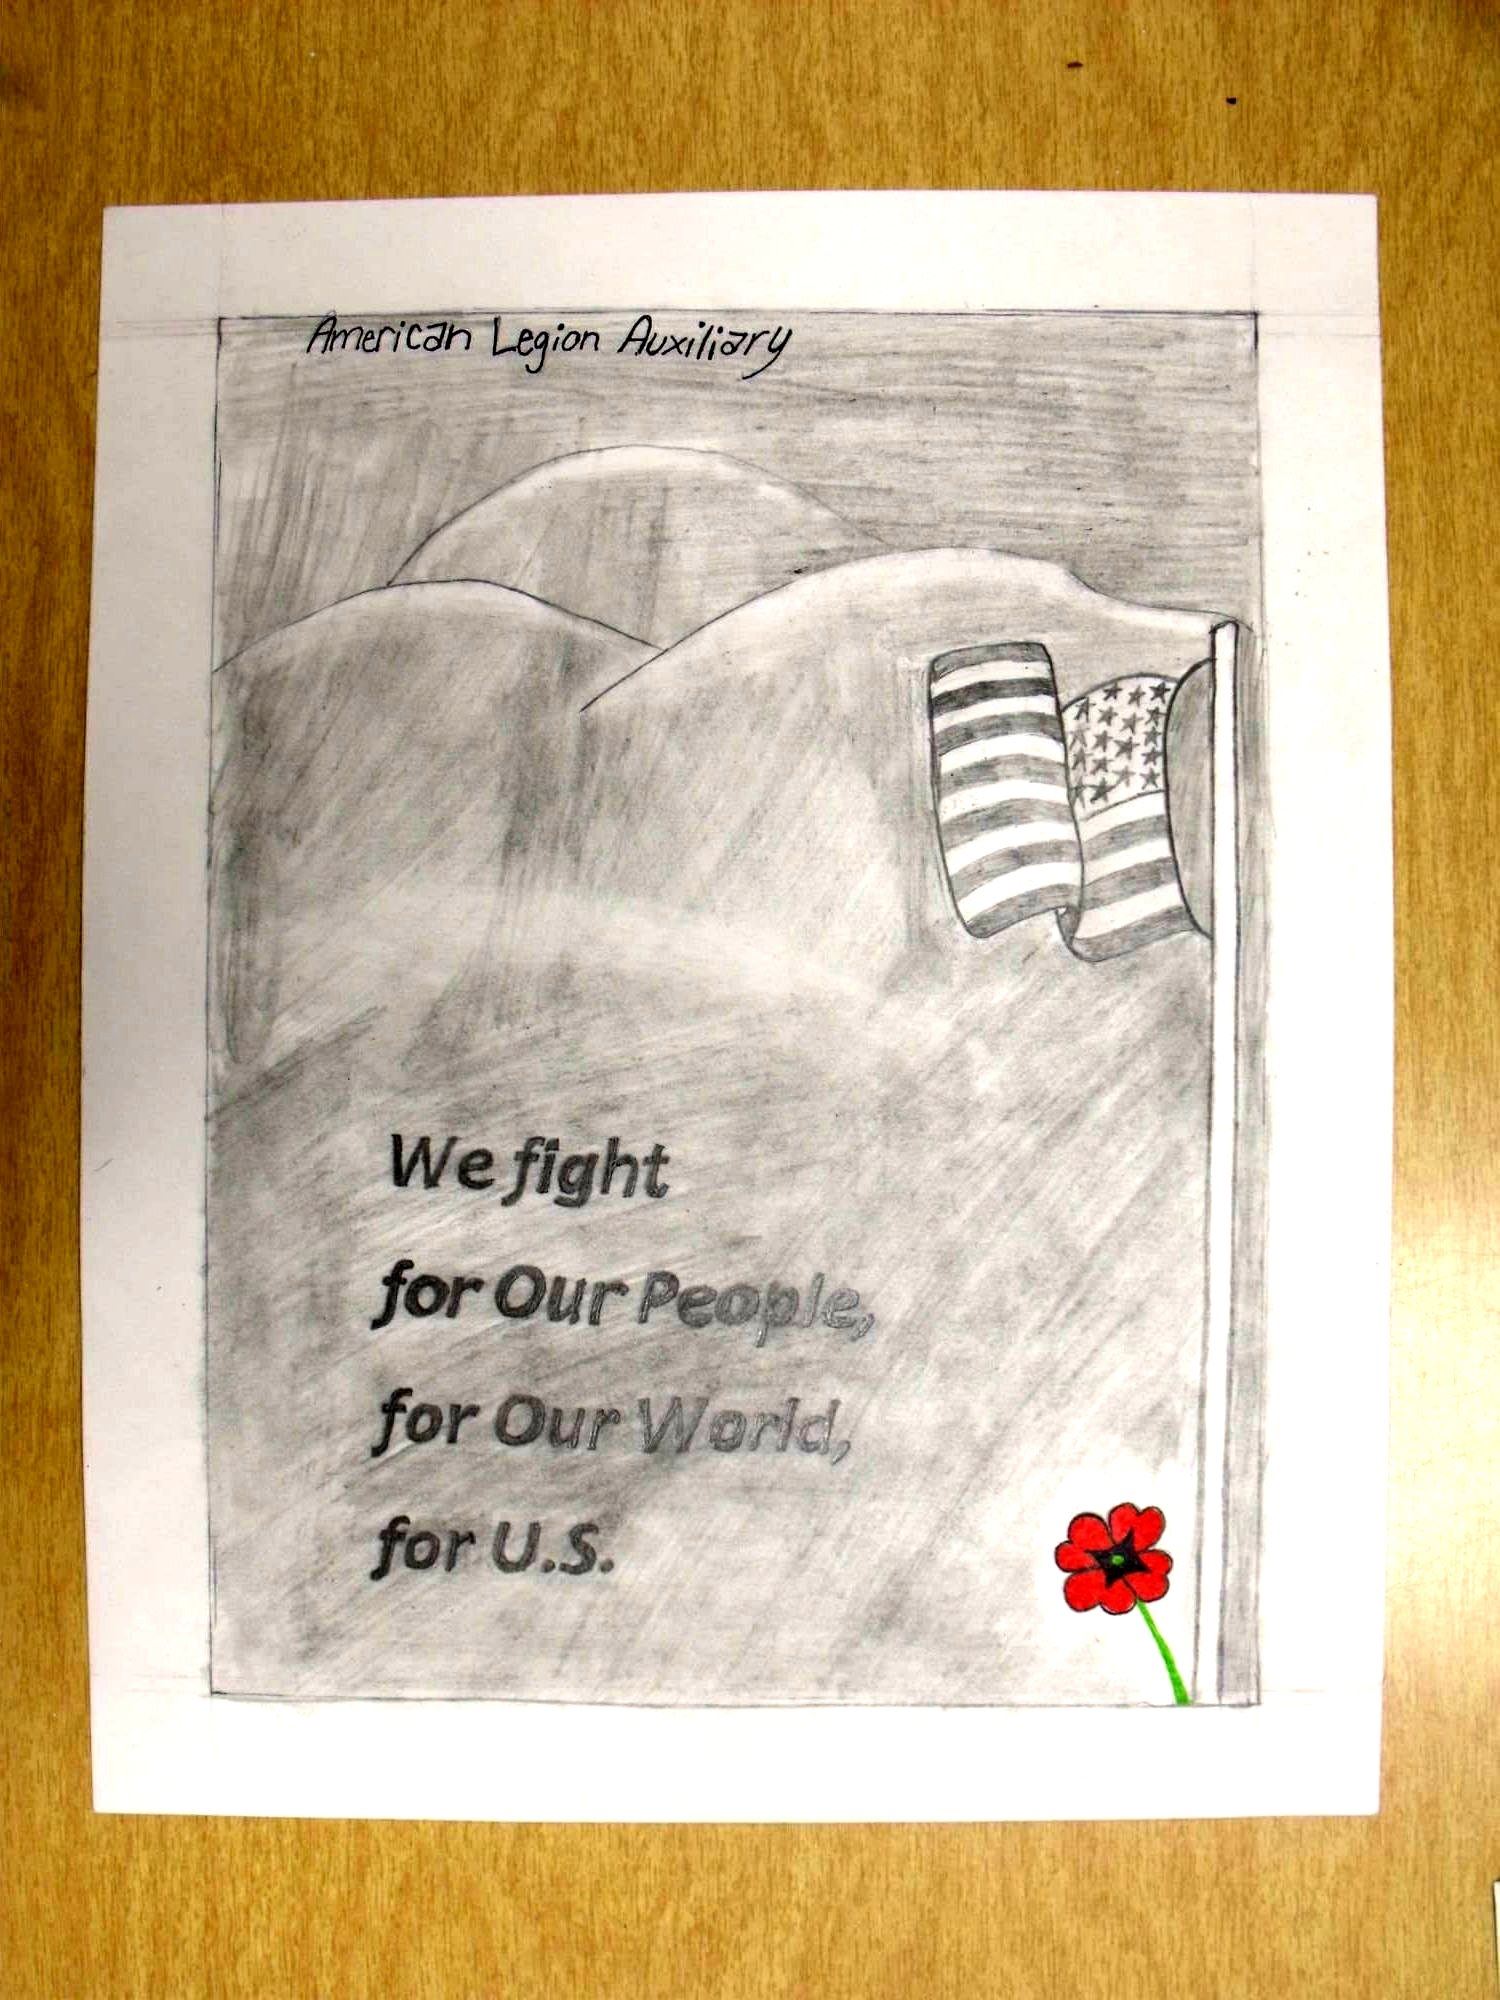 American Legion Auxiliary
We fight
for Our People,
for Our World,
for U.S.